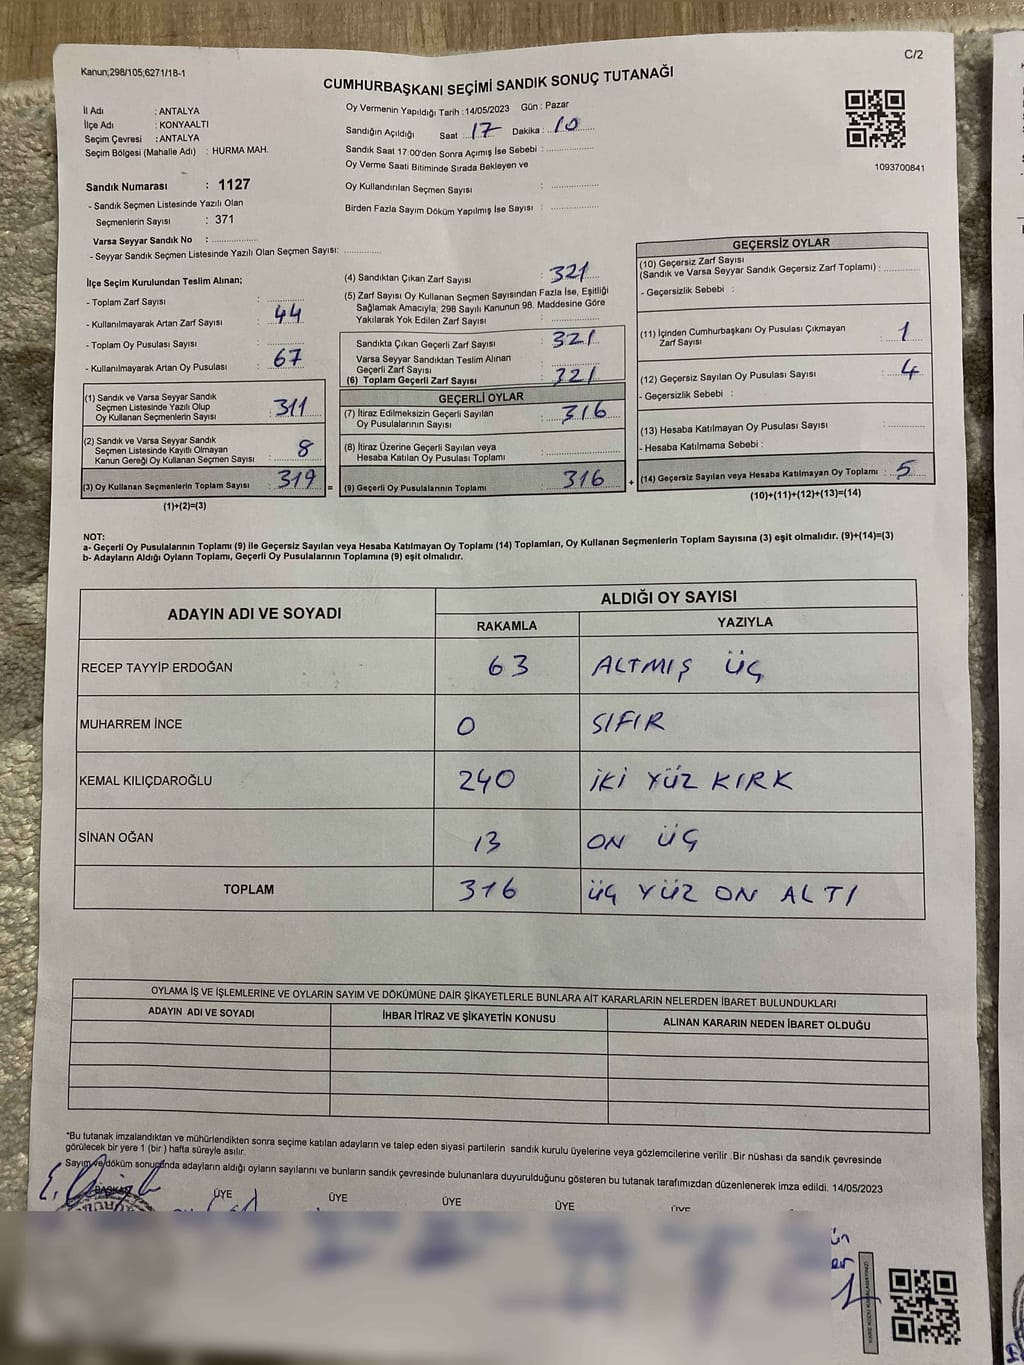 Kanun;298/105;6271/18-1
C/2
CUMHURBAŞKANI SEÇİMİ SANDIK SONUÇ TUTANAĞI
İl Adı : ANTALYA
İlçe Adı : KONYAALTI
Seçim Çevresi : ANTALYA
Seçim Bölgesi (Mahalle Adı) : HURMA MAH.
Oy Vermenin Yapıldığı Tarih : 14/05/2023 Gün : Pazar
Sandığın Açıldığı Saat : 17 Dakika : 10
Sandık Saat 17:00'den Sonra Açımış İse Sebebi :
Oy Verme Saati Bitiminde Sırada Bekleyen ve
Oy Kullandırılan Seçmen Sayısı :
Birden Fazla Sayım Döküm Yapılmış İse Sayısı :
1093700841
Sandık Numarası : 1127
- Sandık Seçmen Listesinde Yazılı Olan
Seçmenlerin Sayısı : 371
Varsa Seyyar Sandık No :
- Seyyar Sandık Listesinde Yazılı Olan Seçmen Sayısı:
İlçe Seçim Kurulundan Teslim Alınan;
- Toplam Zarf Sayısı :
- Kullanılmayarak Artan Zarf Sayısı : 44
- Toplam Oy Pusulası Sayısı :
- Kullanılmayarak Artan Oy Pusulası : 67
(1) Sandık ve Varsa Seyyar Sandık
Seçmen Listesinde Yazılı Olup
Oy Kullanan Seçmenlerin Sayısı : 311
(2) Sandık ve Varsa Seyyar Sandık
Seçmen Listesinde Kayıtlı Olmayan
Kanun Gereği Oy Kullanan Seçmen Sayısı : 8
(3) Oy Kullanan Seçmenlerin Toplam Sayısı : 319 =
(1)+(2)=(3)
(4) Sandıktan Çıkan Zarf Sayısı : 321
(5) Zarf Sayısı Oy Kullanan Seçmen Sayısından Fazla İse, Eşitliği
Sağlamak Amacıyla; 298 Sayılı Kanunun 98. Maddesine Göre
Yakılarak Yok Edilen Zarf Sayısı :
Sandıkta Çıkan Geçerli Zarf Sayısı : 321
Varsa Seyyar Sandıktan Teslim Alınan
Geçerli Zarf Sayısı :
(6) Toplam Geçerli Zarf Sayısı : 321
GEÇERLİ OYLAR
(7) İtiraz Edilmeksizin Geçerli Sayılan
Oy Pusulalarının Sayısı : 316
(8) İtiraz Üzerine Geçerli Sayılan veya
Hesaba Katılan Oy Pusulası Toplamı :
(9) Geçerli Oy Pusulalarının Toplamı : 316 +
GEÇERSİZ OYLAR
(10) Geçersiz Zarf Sayısı
(Sandık ve Varsa Seyyar Sandık Geçersiz Zarf Toplamı) :
- Geçersizlik Sebebi :
(11) İçinden Cumhurbaşkanı Oy Pusulası Çıkmayan
Zarf Sayısı : 1
(12) Geçersiz Sayılan Oy Pusulası Sayısı : 4
- Geçersizlik Sebebi :
(13) Hesaba Katılmayan Oy Pusulası Sayısı :
- Hesaba Katılmama Sebebi :
(14) Geçersiz Sayılan veya Hesaba Katılmayan Oy Toplamı : 5
(10)+(11)+(12)+(13)=(14)
NOT:
a- Geçerli Oy Pusulalarının Toplamı (9) ile Geçersiz Sayılan veya Hesaba Katılmayan Oy Toplamı (14) Toplamları, Oy Kullanan Seçmenlerin Toplam Sayısına (3) eşit olmalıdır. (9)+(14)=(3)
b- Adayların Aldığı Oyların Toplamı, Geçerli Oy Pusulalarının Toplamına (9) eşit olmalıdır.
ADAYIN ADI VE SOYADI ALDIĞI OY SAYISI
RAKAMLA YAZIYLA
RECEP TAYYİP ERDOĞAN 63 ALTMIŞ ÜÇ
MUHARREM İNCE 0 SIFIR
KEMAL KILIÇDAROĞLU 240 İKİ YÜZ KIRK
SİNAN OĞAN 13 ON ÜÇ
TOPLAM 316 ÜÇ YÜZ ON ALTI
OYLAMA İŞ VE İŞLEMLERİNE VE OYLARIN SAYIM VE DÖKÜMÜNE DAİR ŞİKAYETLERLE BUNLARA AİT KARARLARIN NELERDEN İBARET BULUNDUKLARI
ADAYIN ADI VE SOYADI İHBAR İTİRAZ VE ŞİKAYETİN KONUSU ALINAN KARARIN NEDEN İBARET OLDUĞU
*Bu tutanak imzalandıktan ve mühürlendikten sonra seçime katılan adayların ve talep eden siyasi partilerin sandık kurulu üyelerine veya gözlemcilerine verilir .Bir nüshası da sandık çevresinde
görülecek bir yere 1 (bir) hafta süreyle asılır.
Sayım ve döküm sonucunda adayların aldığı oyların sayılarını ve bunların sandık çevresinde bulunanlara duyurulduğunu gösteren bu tutanak tarafımızdan düzenlenerek imza edildi. 14/05/2023
BAŞKAN ÜYE ÜYE ÜYE ÜYE ÜYE